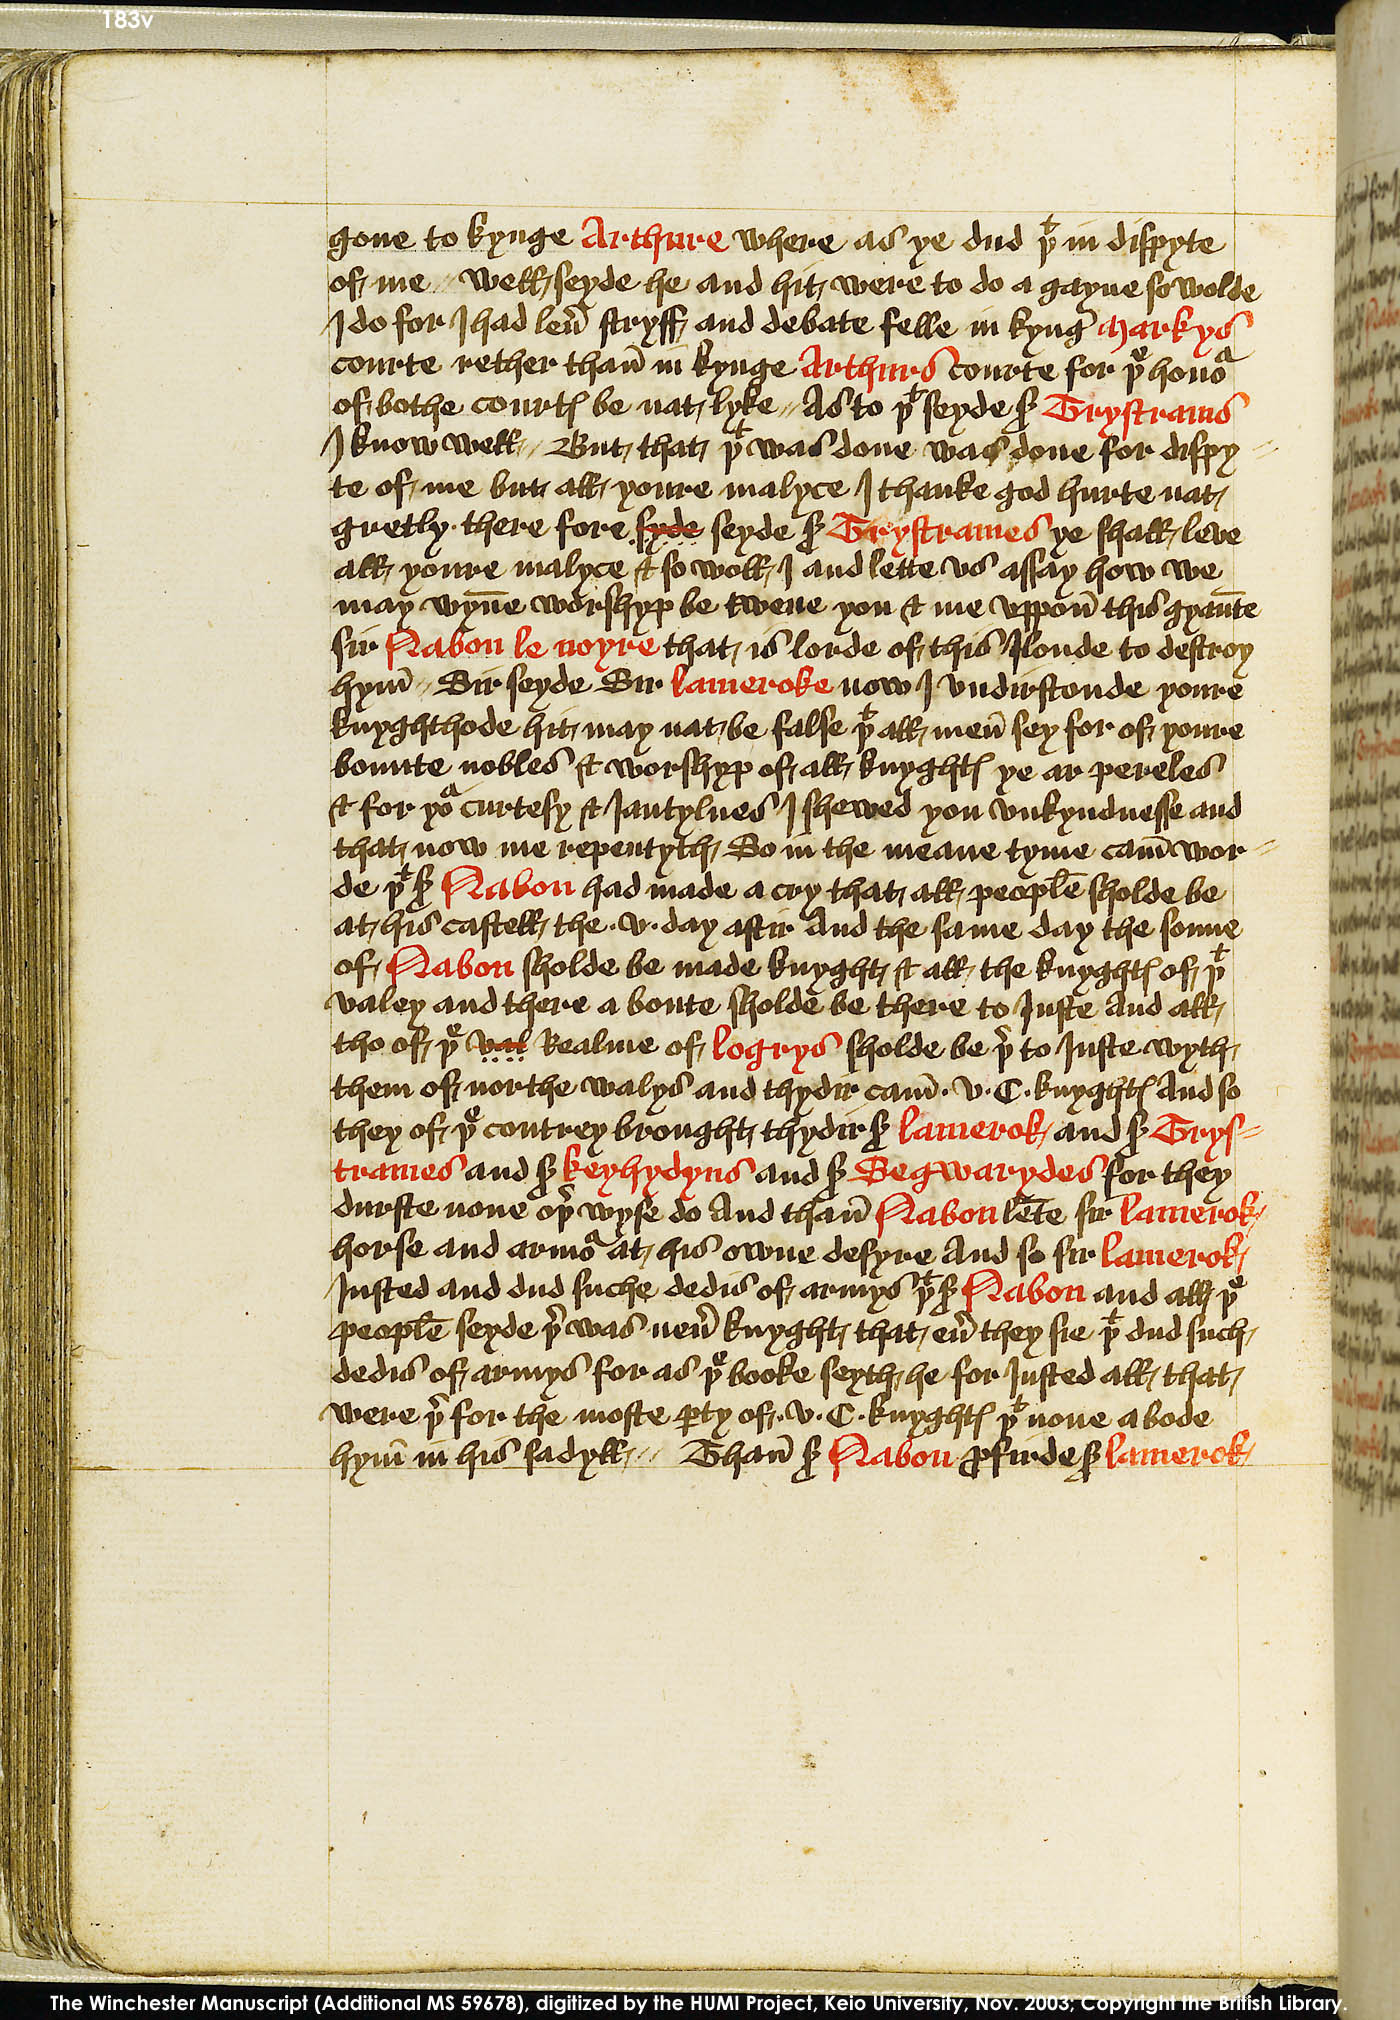 183v
gone to kynge Arthure where as ye dud þᵗ in dispyte
of me // Well seyde he and hit were to do a gayne so wolde
I do for I had leuͬ stryff and debate felle in kyng̉ Markys
courte rether than̄ in kynge Arthurs courte for þᵉ honoͬ
of bothe courtꝭ be nat lyke // As to þᵗ seyde sͬ Trystrams
I know well // But that þᵗ was done was done for dispy //
te of me but all youre malyce I thanke god hurte nat
gretly · there fore syde seyde sͬ Trystrames ye shall leve
all youre malyce & so woll I and lette vs assay how we
may wyn̄e worshyp be twene you & me vppon̄ this gyaun̄te
sir Nabon le noyre that is lorde of this Ilonde to destroy
hym̄ // Sir seyde Sir lameroke now I vndirstonde youre
knyghthode hit may nat be false þᵗ all men̄ sey for of youre
bounte nobles & worshyp of all knyghtꝭ ye ar pereles
& for yoͬ curtesy & Jantylnes I shewed you vnkyndnesse and
that now me repentyth So in the meane tyme cam̄ wor //
de þᵗ sͬ Nabon had made a cry that all people̅ sholde be
at his castell the · v · day aftir And the same day the sonne
of Nabon sholde be made knyght & all the knyghtꝭ of þᵗ
valey and there a boute sholde be there to Juste And all
tho of þᵉ val Realme of logrys sholde be þͬ to Juste wyth
them of northe walys and thydir cam̄ · v · C · knyghtꝭ And so
they of þᵉ contrey brought thydir sͬ lamerok and sͬ Trys //
trames and sͬ keyhydyns and sͬ Segwarydes for they
durste none oþͬ wyse do And than̄ Nabon len̄te sir lamerok
horse and armoͬ at his owne desyre And so sir lamerok
Justed and dud suche dedis of armys þᵗ sͬ Nabon and all þᵉ
people̅ seyde þͬ was neuͬ knyght that euͬ they sie þᵗ dud such
dedis of armys for as þᵉ booke seyth he for Justed all that
were þͬ for the moste ꝑty of · v · C · knyghtꝭ þᵗ none a bode
hym̄ in his sadyll // Than̄ sͬ Nabon ꝓfirde sͬ lamerok
The Winchester Manuscript (Additional MS 59678), digitized by the HUMI Project, Keio University, Nov. 2003; Copyright the British Library.